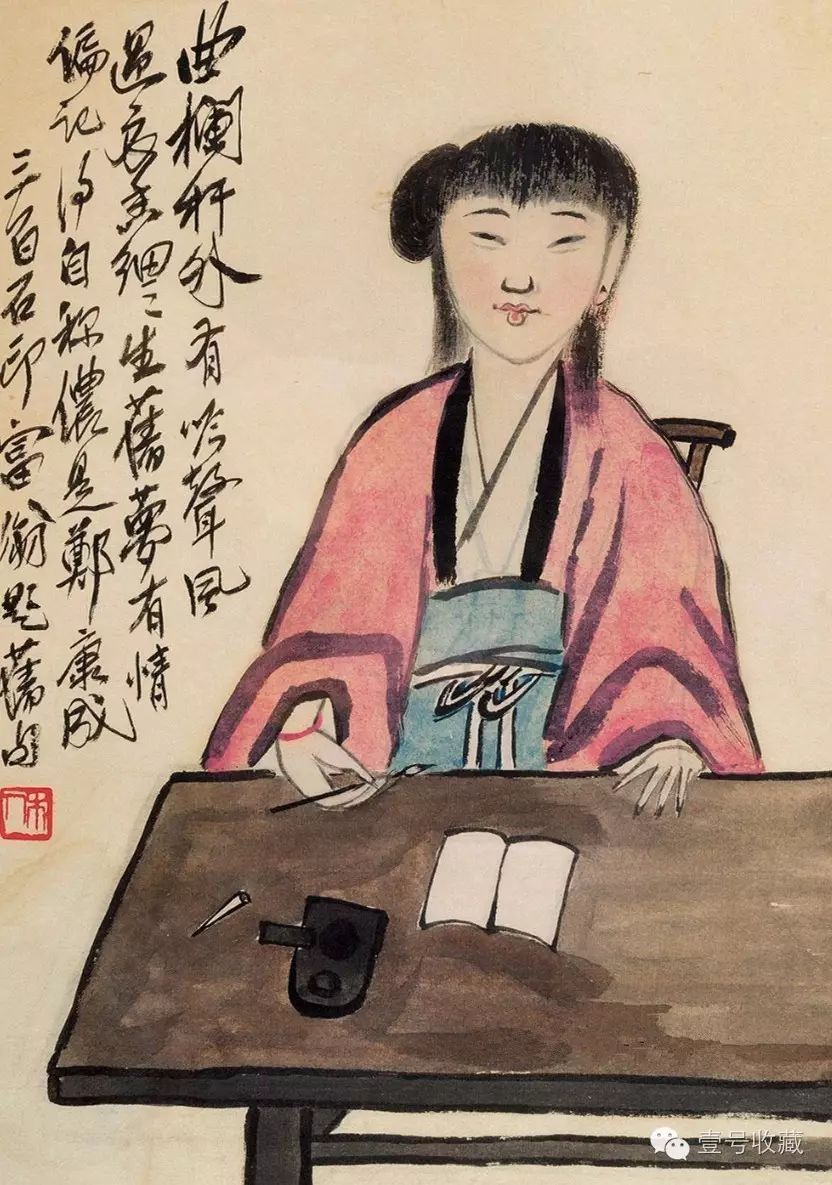 曲欄杆外有吟聲風
過衣香細〻生舊夢有情
偏記得自稱儂是鄭康成
三百石印富翁題舊句
木人
壹号收藏